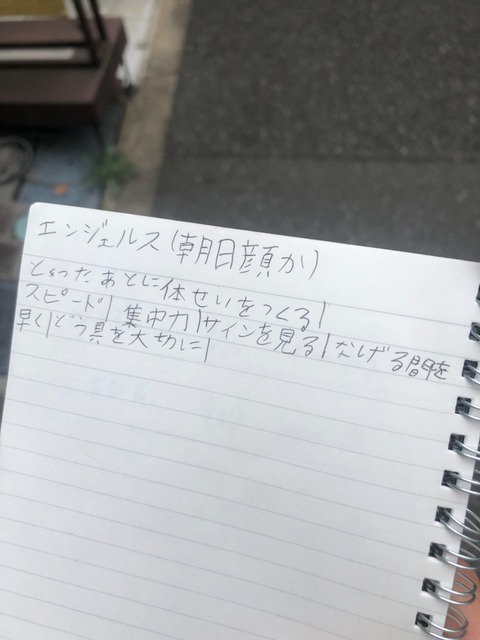 エンジェルス(朝日顔か)
とったあとに体せいをつくる|
スピード| 集中力|サインを見る| なげる間を
早く|どう具を大切に|